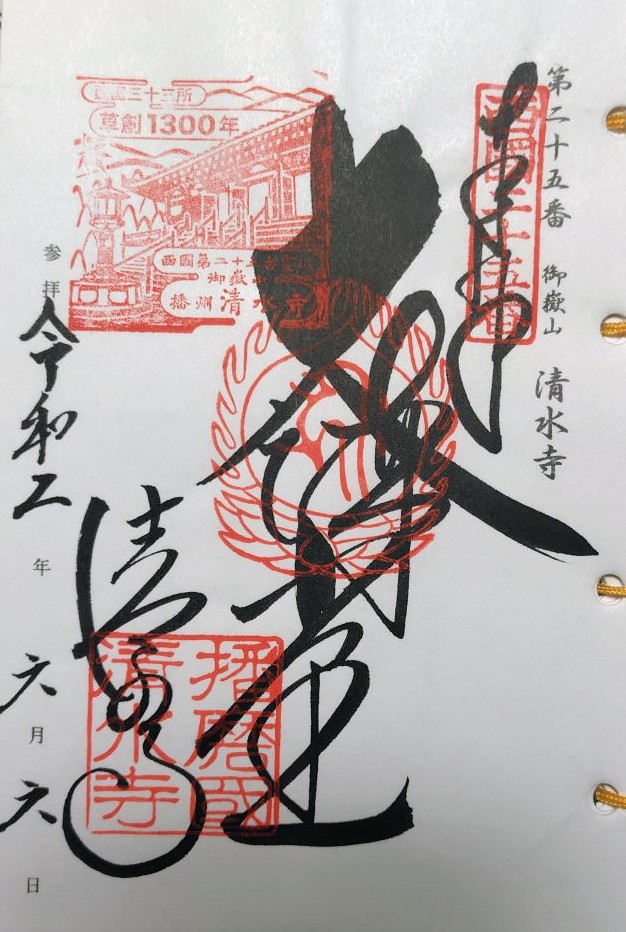 第二十五番 御嶽山 清水寺
西國二十五番
奉拝
大講堂
西国三十三所
草創1300年
西國第二十五番
御嶽山
播州 清水寺
清水寺
播磨國
清水寺
参拝 令和二年 六月 六日